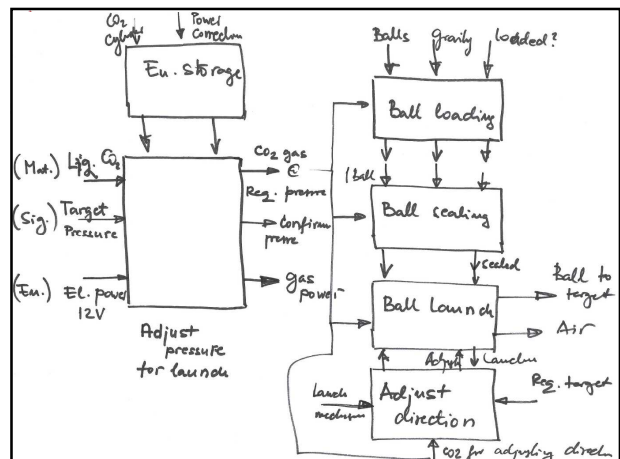 CO2
Cylinder
Power
Connection
En. storage
(Mat.) Liq. CO2
(Sig.) Target
Pressure
(En.) El. power
12V
CO2 gas
@
Req. pressure
Confirm
gas
power
Adjust
pressure
for launch
Balls
gravity
loaded?
Ball loading
1 Ball
Ball sealing
sealed
Ball launch
Ball to
target
Air
Adjust
Launch
Adjust
direction
Req. target
CO2 for adjusting